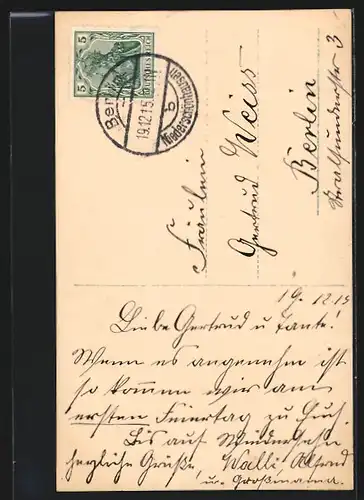 5 5
Berlin
19.12.15.
b
Niederschönhausen
Fräulein
Gertrud Weiss
Berlin
Stralsunderstr 3
19.12.15
Liebe Gertrud u Tante!
Wenn es angenehm ist
so kommen wir am
ersten Feiertag zu Euch.
Bis auf Wiedersehn
herzliche Grüße, Walli, Alfred
u. Großmama.